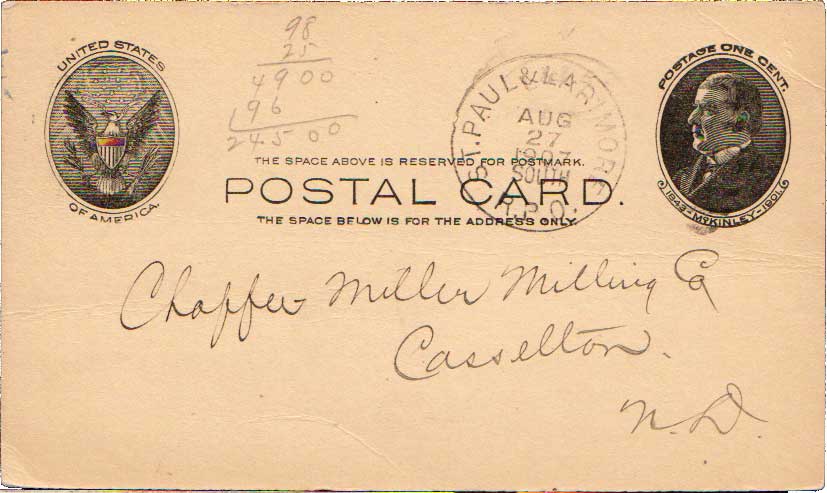 UNITED STATES
OF AMERICA.
98
25
4900
196
24500
ST. PAUL & LARIMORE
AUG
27
1907
SOUTH
R.P.O.
POSTAGE ONE CENT.
1843-McKINLEY-1901.
THE SPACE ABOVE IS RESERVED FOR POSTMARK.
POSTAL CARD.
THE SPACE BELOW IS FOR THE ADDRESS ONLY.
Chaffee Miller Milling Co
Casselton.
N.D.